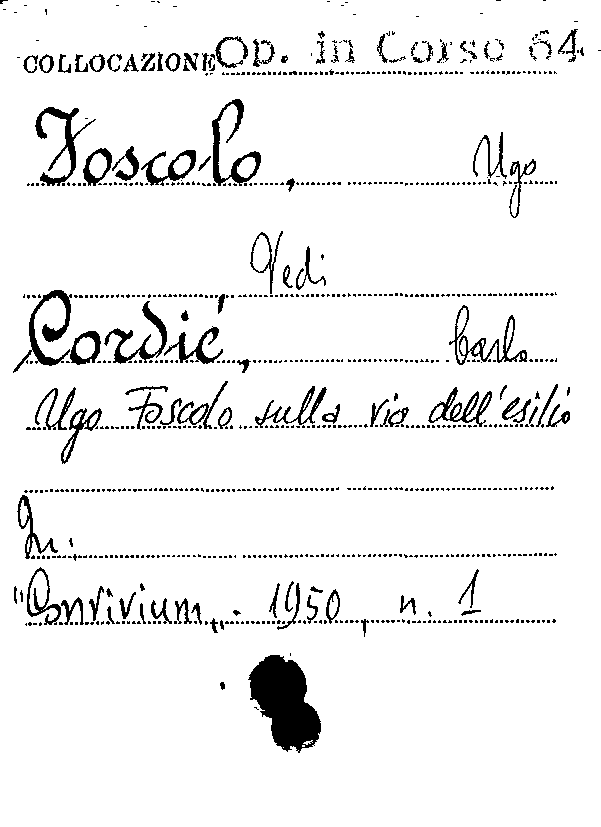 COLLOCAZIONE Op. in Corso 64
Foscolo, Ugo
Vedi
Cordié, Carlo
Ugo Foscolo sulla via dell'esilio
In:
"Convivium„. 1950, n. 1